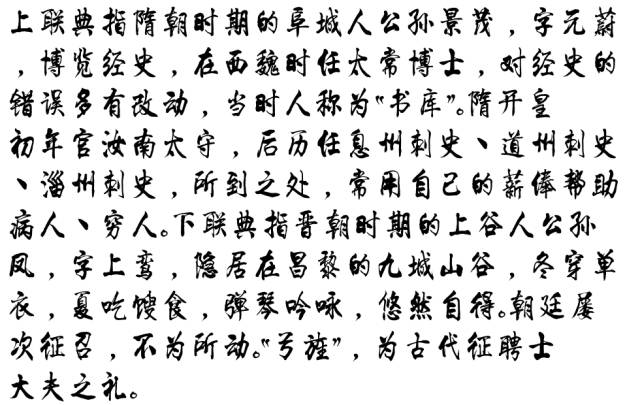 上联典指隋朝时期的阜城人公孙景茂，字元蔚
，博览经史，在西魏时任太常博士，对经史的
错误多有改动，当时人称为“书库”。隋开皇
初年官汝南太守，后历任息州刺史、道州刺史
、淄州刺史，所到之处，常用自己的薪俸帮助
病人、穷人。下联典指晋朝时期的上谷人公孙
凤，字上鸾，隐居在昌黎的九城山谷，冬穿单
衣，夏吃馊食，弹琴吟咏，悠然自得。朝廷屡
次征召，不为所动。“弓旌”，为古代征聘士
大夫之礼。